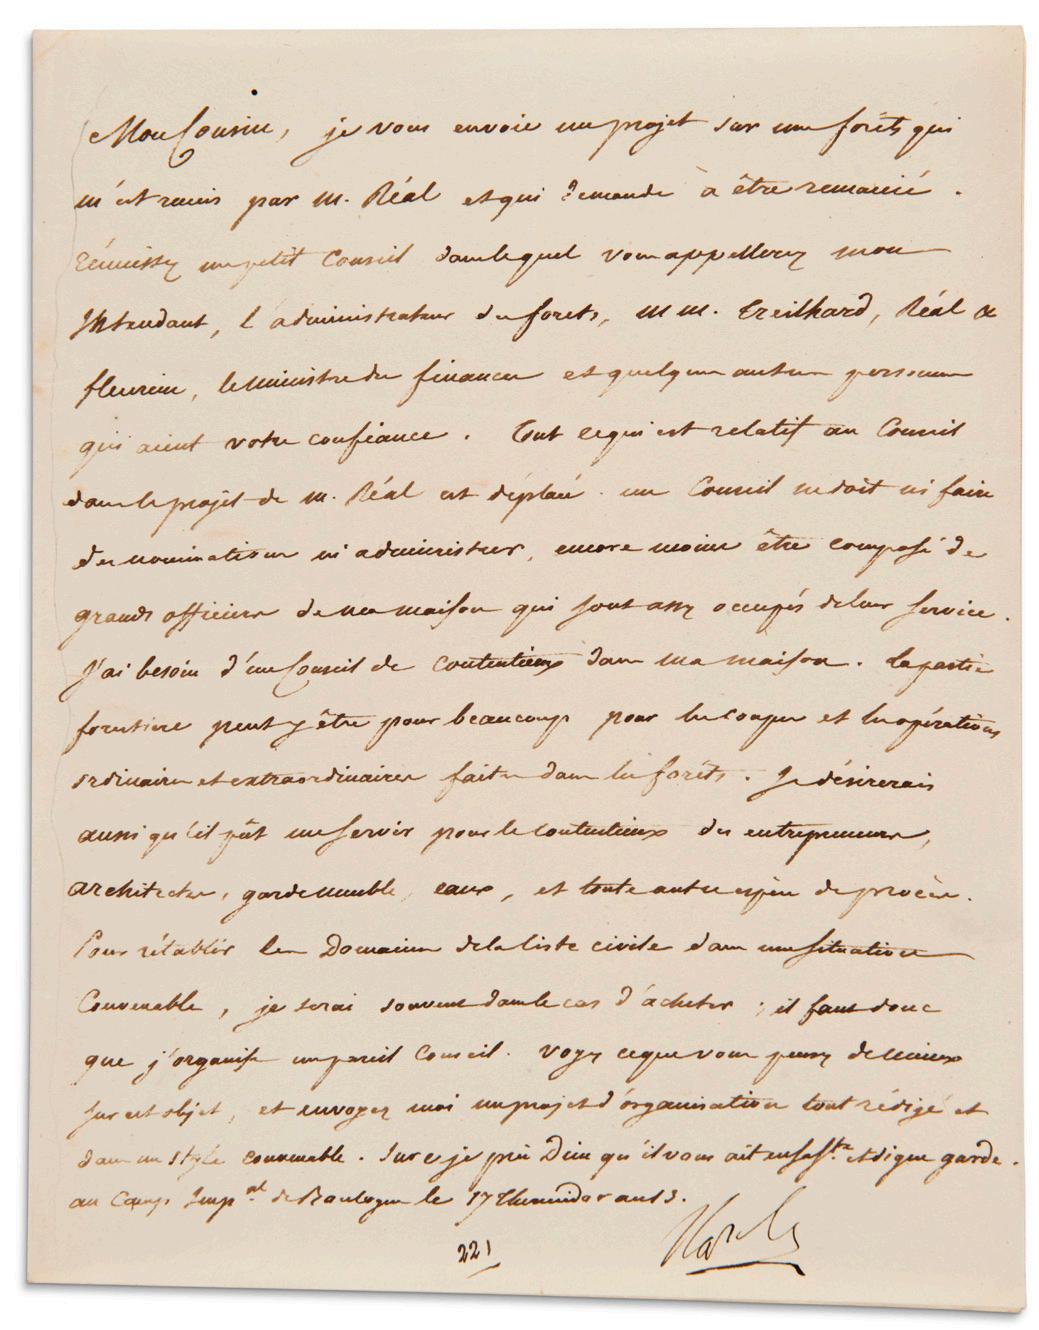 Mon Cousin, je vous envoie un projet sur une forêts qui
m'est remis par M. Réal et qui demande à être remanié.
Réunissez un petit Conseil dans lequel vous appellerez mon
Intendant, l'administrateur des forets, MM. Treilhard, Réal &
fleurieu, le ministre des finances et quelques autres personnes
qui aient votre confiance. Tout ce qui est relatif au Conseil
dans le projet de M. Réal est déplacé. un Conseil ne doit ni faire
des nominations ni administrer, encore moins être composé de
grands officiers de ma maison qui sont assez occupés de leur service.
J'ai besoin d'un Conseil de contentieux dans ma maison. la partie
forestiere peut y être pour beaucoup pour les coupes et les opérations
ordinaires et extraordinaires faites dans les forêts. Je désirerais
aussi qu'il pût me servir pour le contentieux des entrepreneurs,
architectes, garde meuble, eaux, et toute autre espèce de procès.
Pour rétablir les Domaines de la liste civile dans une situation
Convenable, je serai souvent dans le cas d'acheter ; il faut donc
que j'organise un pareil Conseil. Voyez ce que vous pensez de mieux
sur cet objet, et envoyez moi un projet d'organisation tout rédigé et
dans un style convenable. Sur ce je prie Dieu qu'il vous ait en sa Ste et digne garde.
au Camp Impal de Boulogne le 17 Thermidor an 13.
221